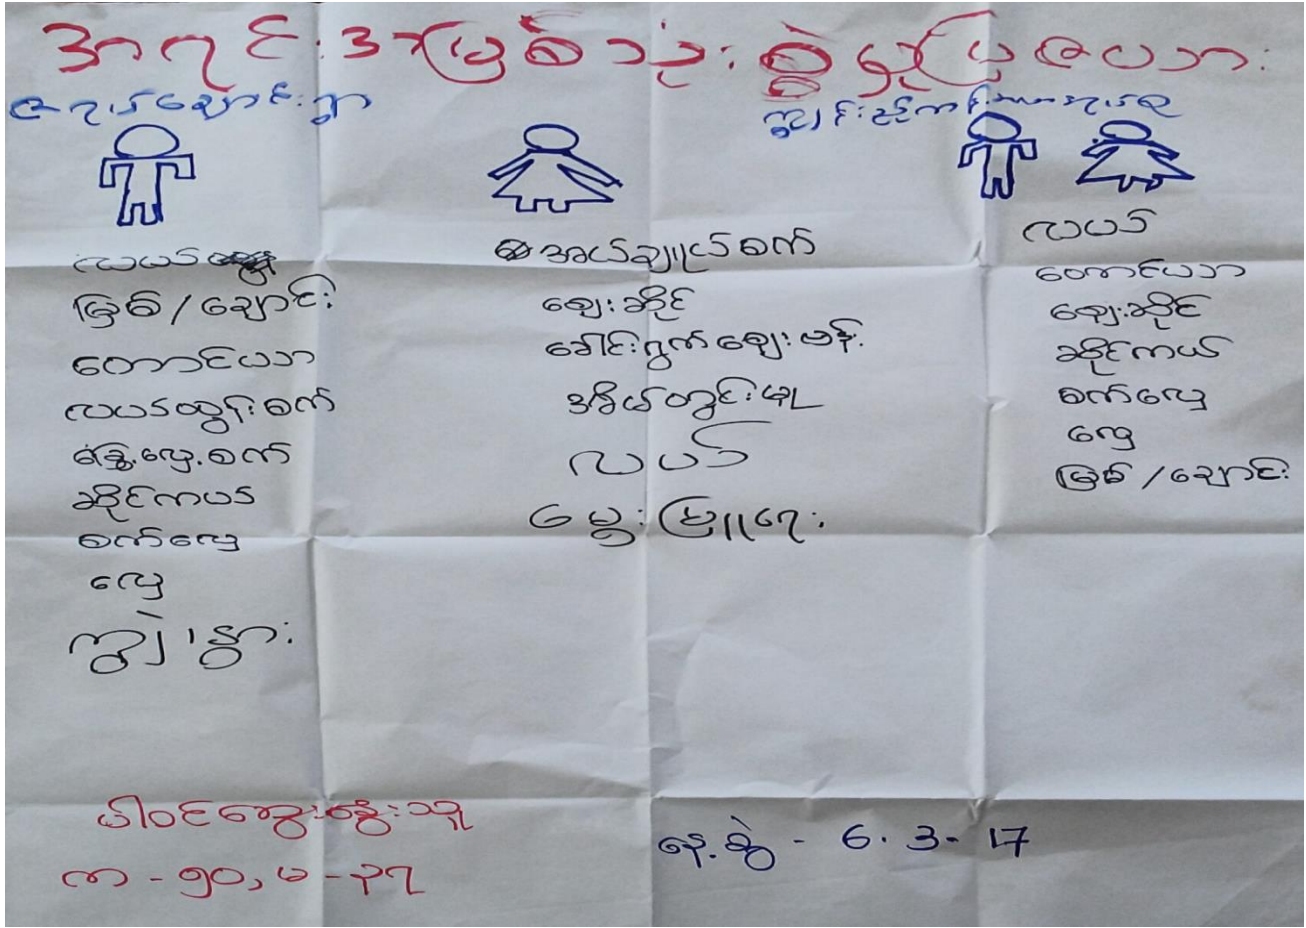 အရင်းအမြစ်သုံးစွဲမှုပြဇယား
လယ်
မြစ်/ချောင်း
တောင်ယာ
လယ်ထွန်စက်
ခြွေလှေ့စက်
ဆိုင်ကယ်
စက်လှေ
လှေ
ကျွဲ၊နွား
အပ်ချုပ်စက်
ဈေးဆိုင်
ခေါင်းရွက်ဈေးဗန်း
အိမ်တွင်းမှု
လယ်
မွေးမြူရေး
လယ်
တောင်ယာ
ဈေးဆိုင်
ဆိုင်ကယ်
စက်လှေ
လှေ
မြစ်/ချောင်း
ပါဝင်ဆွေးနွေးသူ
ကာ - ၅၀, မ - ၃၇
နေ့စွဲ - 6.3-17